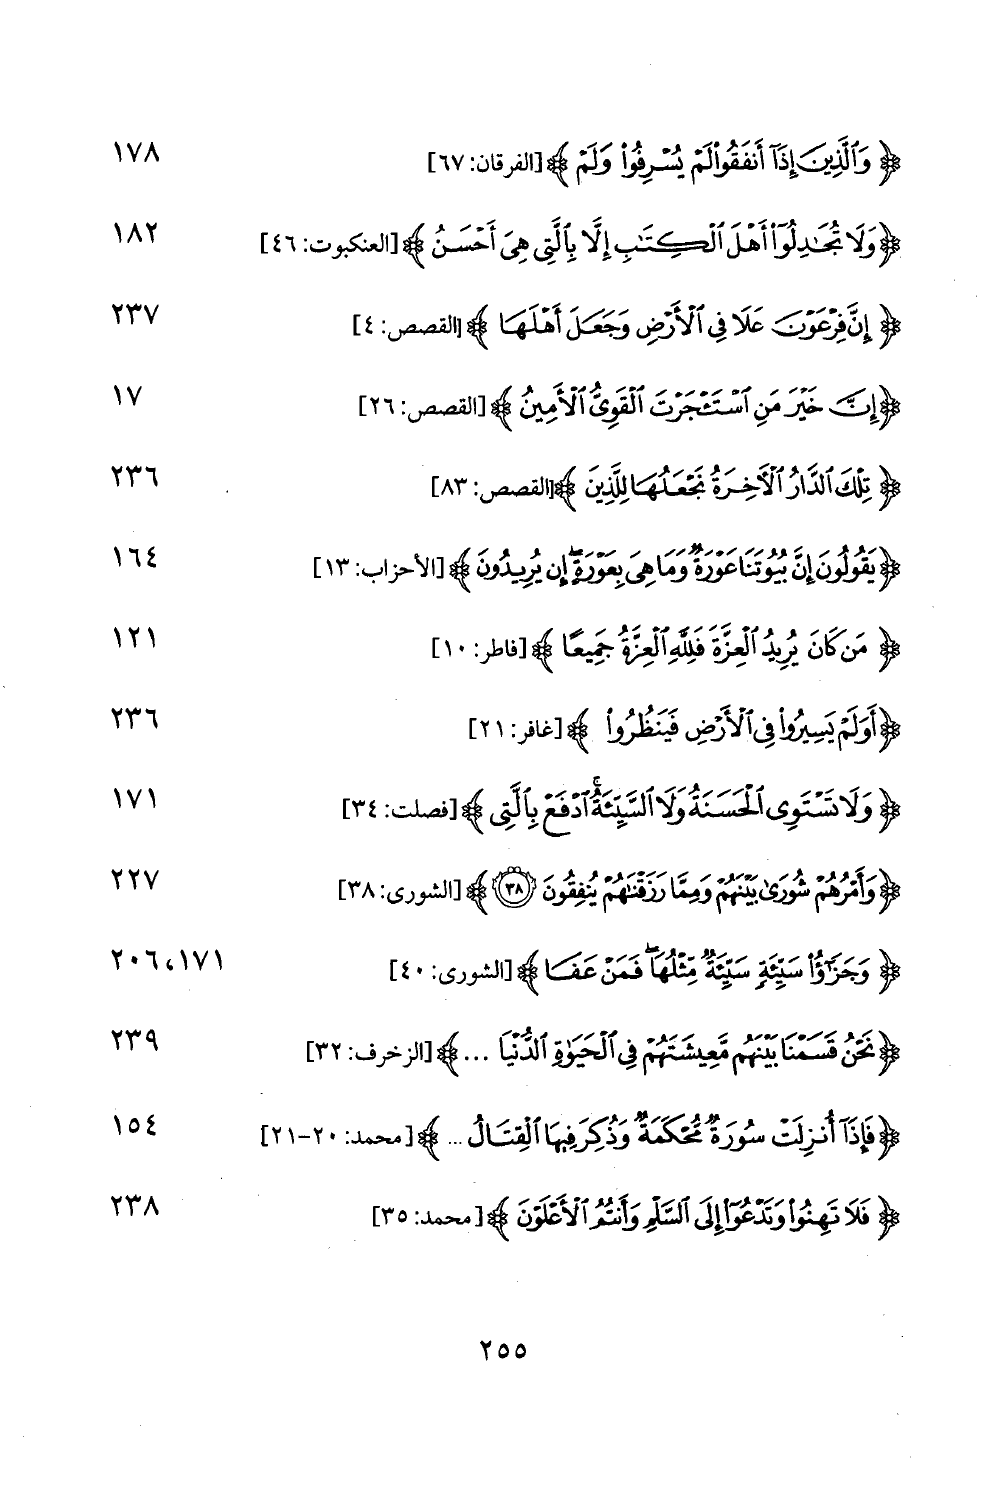 ﴿ وَٱلَّذِينَ إِذَآ أَنفَقُوا۟ لَمْ يُسْرِفُوا۟ وَلَمْ ﴾ [الفرقان: ٦٧] ١٧٨
﴿ وَلَا تُجَٰدِلُوٓا۟ أَهْلَ ٱلْكِتَٰبِ إِلَّا بِٱلَّتِى هِىَ أَحْسَنُ ﴾ [العنكبوت: ٤٦] ١٨٢
﴿ إِنَّ فِرْعَوْنَ عَلَا فِى ٱلْأَرْضِ وَجَعَلَ أَهْلَهَا ﴾ [القصص: ٤] ٢٣٧
﴿ إِنَّ خَيْرَ مَنِ ٱسْتَـْٔجَرْتَ ٱلْقَوِىُّ ٱلْأَمِينُ ﴾ [القصص: ٢٦] ١٧
﴿ تِلْكَ ٱلدَّارُ ٱلْءَاخِرَةُ نَجْعَلُهَا لِلَّذِينَ ﴾ [القصص: ٨٣] ٢٣٦
﴿ يَقُولُونَ إِنَّ بُيُوتَنَا عَوْرَةٌ وَمَا هِىَ بِعَوْرَةٍ ۖ إِن يُرِيدُونَ ﴾ [الأحزاب: ١٣] ١٦٤
﴿ مَن كَانَ يُرِيدُ ٱلْعِزَّةَ فَلِلَّهِ ٱلْعِزَّةُ جَمِيعًا ﴾ [فاطر: ١٠] ١٢١
﴿ أَوَلَمْ يَسِيرُوا۟ فِى ٱلْأَرْضِ فَيَنظُرُوا۟ ﴾ [غافر: ٢١] ٢٣٦
﴿ وَلَا تَسْتَوِى ٱلْحَسَنَةُ وَلَا ٱلسَّيِّئَةُ ۚ ٱدْفَعْ بِٱلَّتِى ﴾ [فصلت: ٣٤] ١٧١
﴿ وَأَمْرُهُمْ شُورَىٰ بَيْنَهُمْ وَمِمَّا رَزَقْنَٰهُمْ يُنفِقُونَ ٣٨ ﴾ [الشورى: ٣٨] ٢٢٧
﴿ وَجَزَٰٓؤُا۟ سَيِّئَةٍ سَيِّئَةٌ مِّثْلُهَا ۖ فَمَنْ عَفَا ﴾ [الشورى: ٤٠] ١٧١، ٢٠٦
﴿ نَحْنُ قَسَمْنَا بَيْنَهُم مَّعِيشَتَهُمْ فِى ٱلْحَيَوٰةِ ٱلدُّنْيَا ... ﴾ [الزخرف: ٣٢] ٢٣٩
﴿ فَإِذَآ أُنزِلَتْ سُورَةٌ مُّحْكَمَةٌ وَذُكِرَ فِيهَا ٱلْقِتَالُ ... ﴾ [محمد: ٢٠-٢١] ١٥٤
﴿ فَلَا تَهِنُوا۟ وَتَدْعُوٓا۟ إِلَى ٱلسَّلْمِ وَأَنتُمُ ٱلْأَعْلَوْنَ ﴾ [محمد: ٣٥] ٢٣٨
٢٥٥